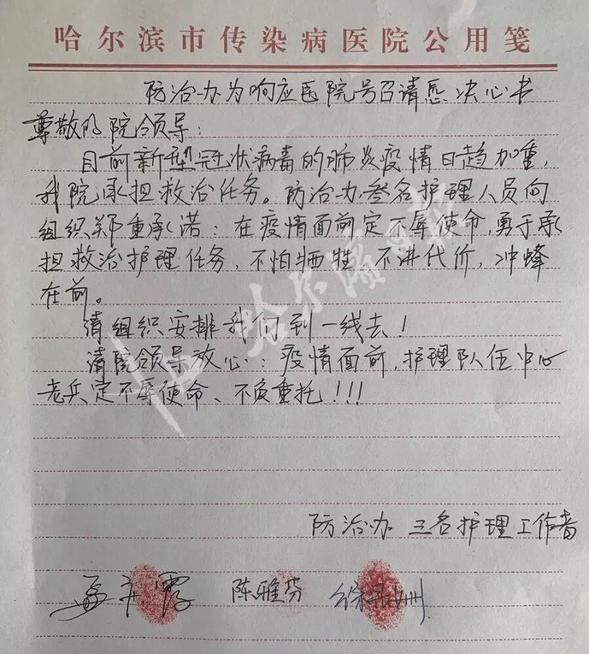 哈尔滨市传染病医院公用笺
防治办为响应医院号召请愿决心书
尊敬的院领导：
目前新型冠状病毒的肺炎疫情日趋加重，
我院承担救治任务。防治办叁名护理人员向
组织郑重承诺：在疫情面前定不辱使命，勇于承
担救治护理任务，不怕牺牲，不讲代价，冲蜂
在前。
请组织安排我们到一线去！
请院领导放心：疫情面前，护理队伍中心
老兵定不辱使命、不负重托!!!
防治办 三名护理工作者
陈雅芬
哈尔滨日报